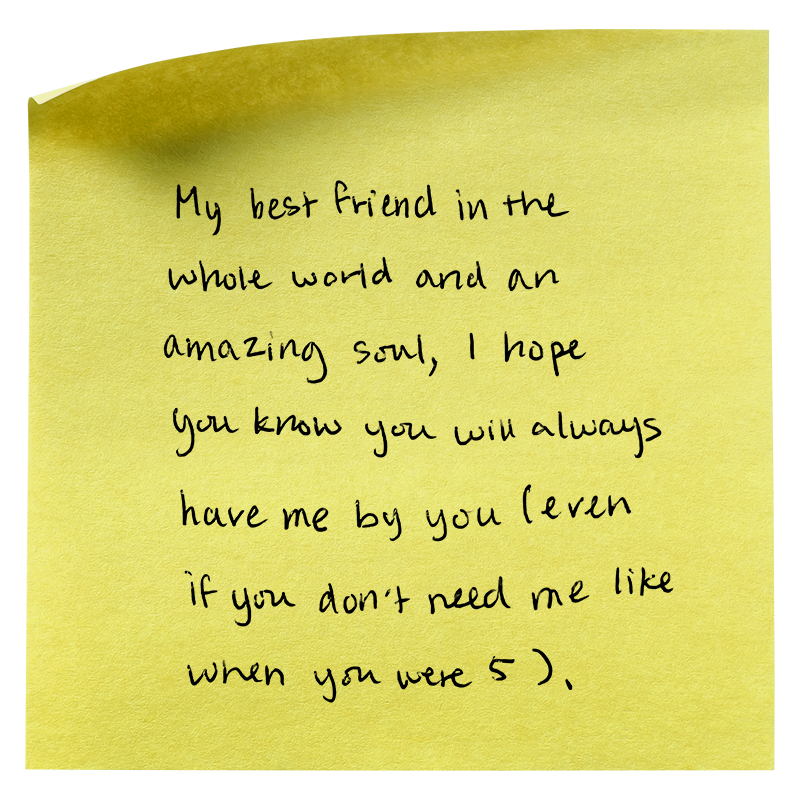 My best friend in the
whole world and an
amazing soul, I hope
you know you will always
have me by you (even
if you don't need me like
when you were 5).